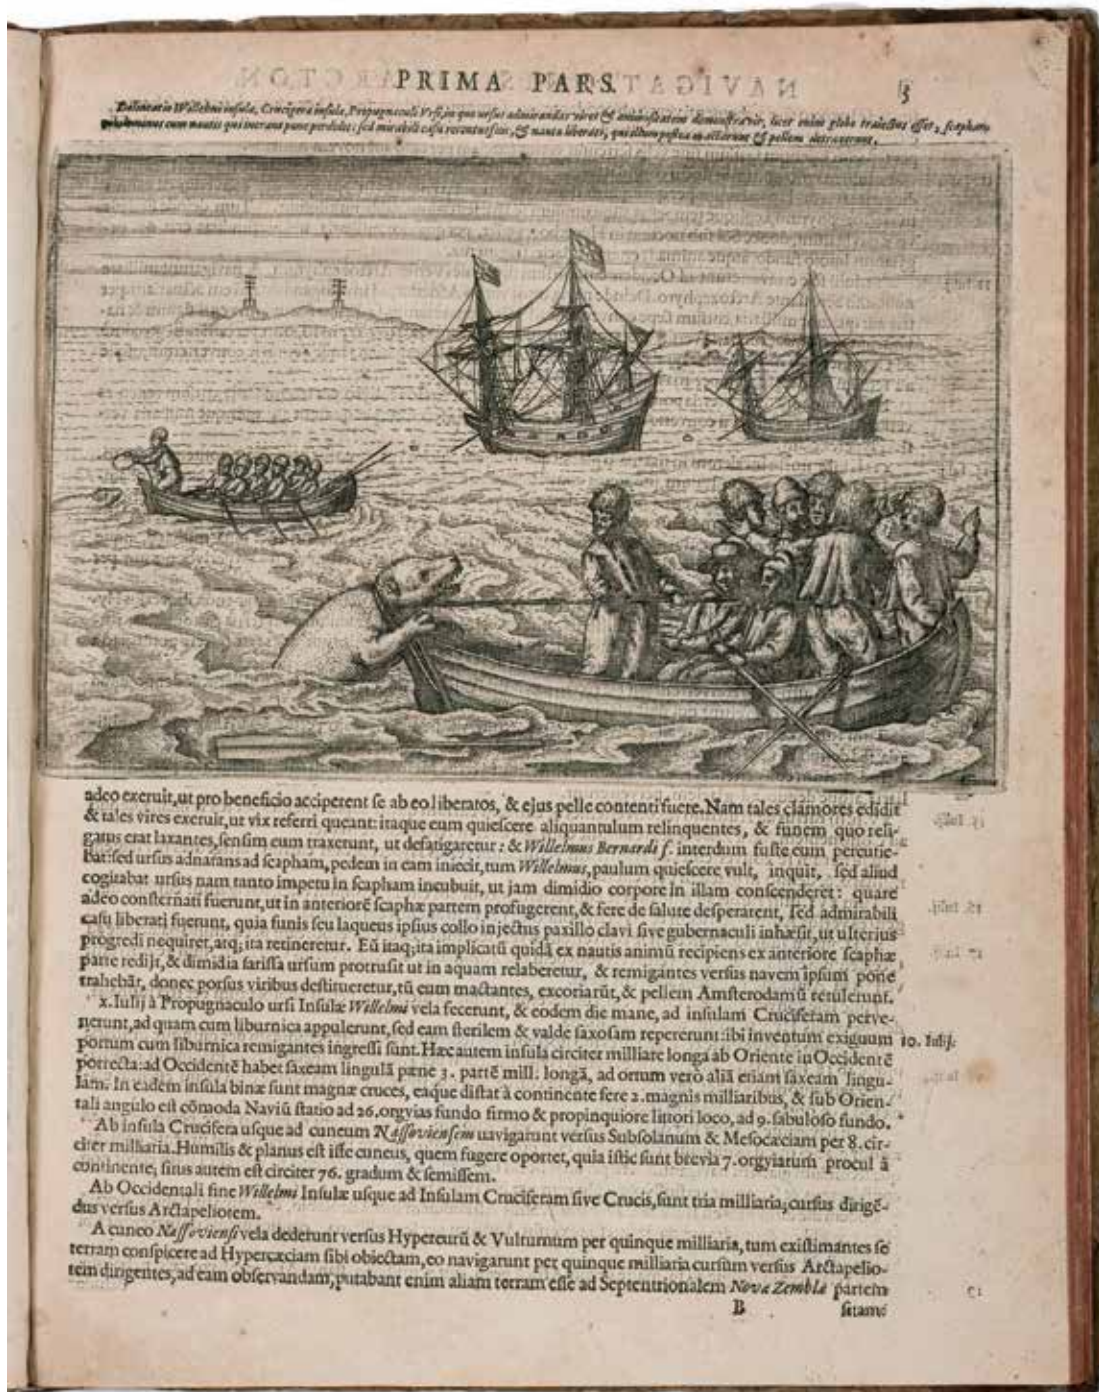 PRIMA PARS.
Delineatio Willelmi insulæ, Cruciferæ insulæ, Propugnaculi Ursi, in quo ursus admirandas vires & animositatem demonstravit, licet enim globo traiectus esset, scapham
cum nautis qui intrant pene perdidit: sed mirabili casu retentus fuit, & nautæ liberati, qui illum postea mactarunt & pellem detraxerunt.
adeo exeruit, ut pro beneficio acciperent se ab eo liberatos, & ejus pelle contenti fuere. Nam tales clamores edidit
& tales vires exeruit, ut vix referri queant: itaque eum quiescere aliquantulum relinquentes, & funem quo reli-
gatus erat laxantes, sensim eum traxerunt, ut defatigaretur: & Willelmus Bernardi f. interdum fuste eum percutie-
bat: sed ursus adnatans ad scapham, pedem in eam iniecit, tum Willelmus, paulum quiescere vult, inquit, sed aliud
cogitabat ursus nam tanto impetu in scapham incubuit, ut jam dimidio corpore in illam conscenderet: quare
adeo consternati fuerunt, ut in anteriorē scaphæ partem profugerent, & fere de salute desperarent, sed admirabili
casu liberati fuerunt, quia funis seu laqueus ipsius collo injectus paxillo clavi sive gubernaculi inhæsit, ut ulterius
progredi nequiret, atq; ita retineretur. Eū itaq; ita implicatū quidā ex nautis animū recipiens ex anteriore scaphæ
parte redijt, & dimidia sarissa ursum protrusit ut in aquam relaberetur, & remigantes versus navem ipsum pone
trahebāt, donec porsus viribus destitueretur, tū eum mactantes, excoriarūt, & pellem Amsterodamū retulerunt.
x. Iulij à Propugnaculo ursi Insulæ Willelmi vela fecerunt, & eodem die mane, ad insulam Cruciferam perve-
nerunt, ad quam cum liburnica appulerunt, sed eam sterilem & valde saxosam repererunt: ibi inventum exiguum
10. Iulij.
portum cum liburnica remigantes ingressi sunt. Hæc autem insula circiter milliare longa ab Oriente in Occidentē
porrecta: ad Occidentē habet saxeam lingulā pæne 3. partē mill. longā, ad ortum verò aliā etiam saxeam lingu-
lam. In eadem insula binæ sunt magnæ cruces, eaque distat à continente fere 2. magnis milliaribus, & sub Orien-
tali angulo est cōmoda Naviū statio ad 26. orgyias fundo firmo & propinquiore littori loco, ad 9. sabuloso fundo.
Ab insula Crucifera usque ad cuneum Nassoviensem navigarunt versus Subsolanum & Mesocæciam per 8. cir-
citer milliaria. Humilis & planus est iste cuneus, quem fugere oportet, quia istic sunt brevia 7. orgyiarum procul à
continente, situs autem est circiter 76. gradum & semissem.
Ab Occidentali fine Willelmi Insulæ usque ad Insulam Cruciferam sive Crucis, sunt tria milliaria, cursus dirigē-
dus versus Arctapeliotem.
A cuneo Nassoviensi vela dederunt versus Hypereurū & Vulturnum per quinque milliaria, tum existimantes se
terram conspicere ad Hypercæciam sibi obiectam, eo navigarunt per quinque milliaria cursum versus Arctapelio-
tem dirigentes, ad eam observandam, putabant enim aliam terram esse ad Septentrionalem Novæ Zemblæ partem
B sitam: